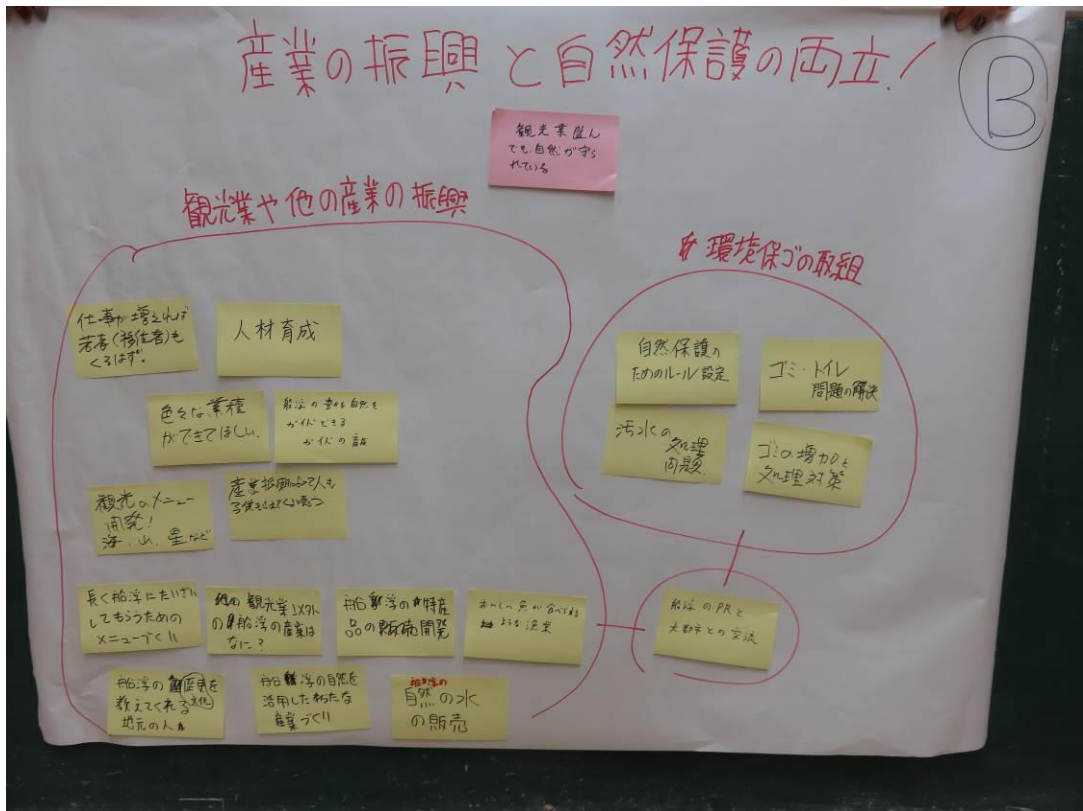 産業の振興と自然保護の両立!
B
観光業盛ん
でも自然が守ら
れている
観光業や他の産業の振興
仕事が増えれば
若者(移住者)も
くるはず。
人材育成
色々な業種
ができてほしい。
船浮の豊かな自然を
ガイドできる
ガイドの
観光のメニュー
開発!
海、山、星など
産業振興によって人も
子供も
長く船浮にたいざい
してもらうための
メニューづくり
他の観光業以外
の船浮の産業は
なに?
船浮の特産
品の販売開発
おいしい魚が食べれる
ような漁業
船浮の歴史を
文化
教えてくれる
地元の人
船浮の自然を
活用したあらたな
産業づくり
船浮の
自然の水
の販売
環境保ゴの取組
自然保護の
ためのルール設定
ゴミ・トイレ
問題の解決
汚水の
処理
問題
ゴミの増加と
処理対策
船浮のPRと
大都市との交流